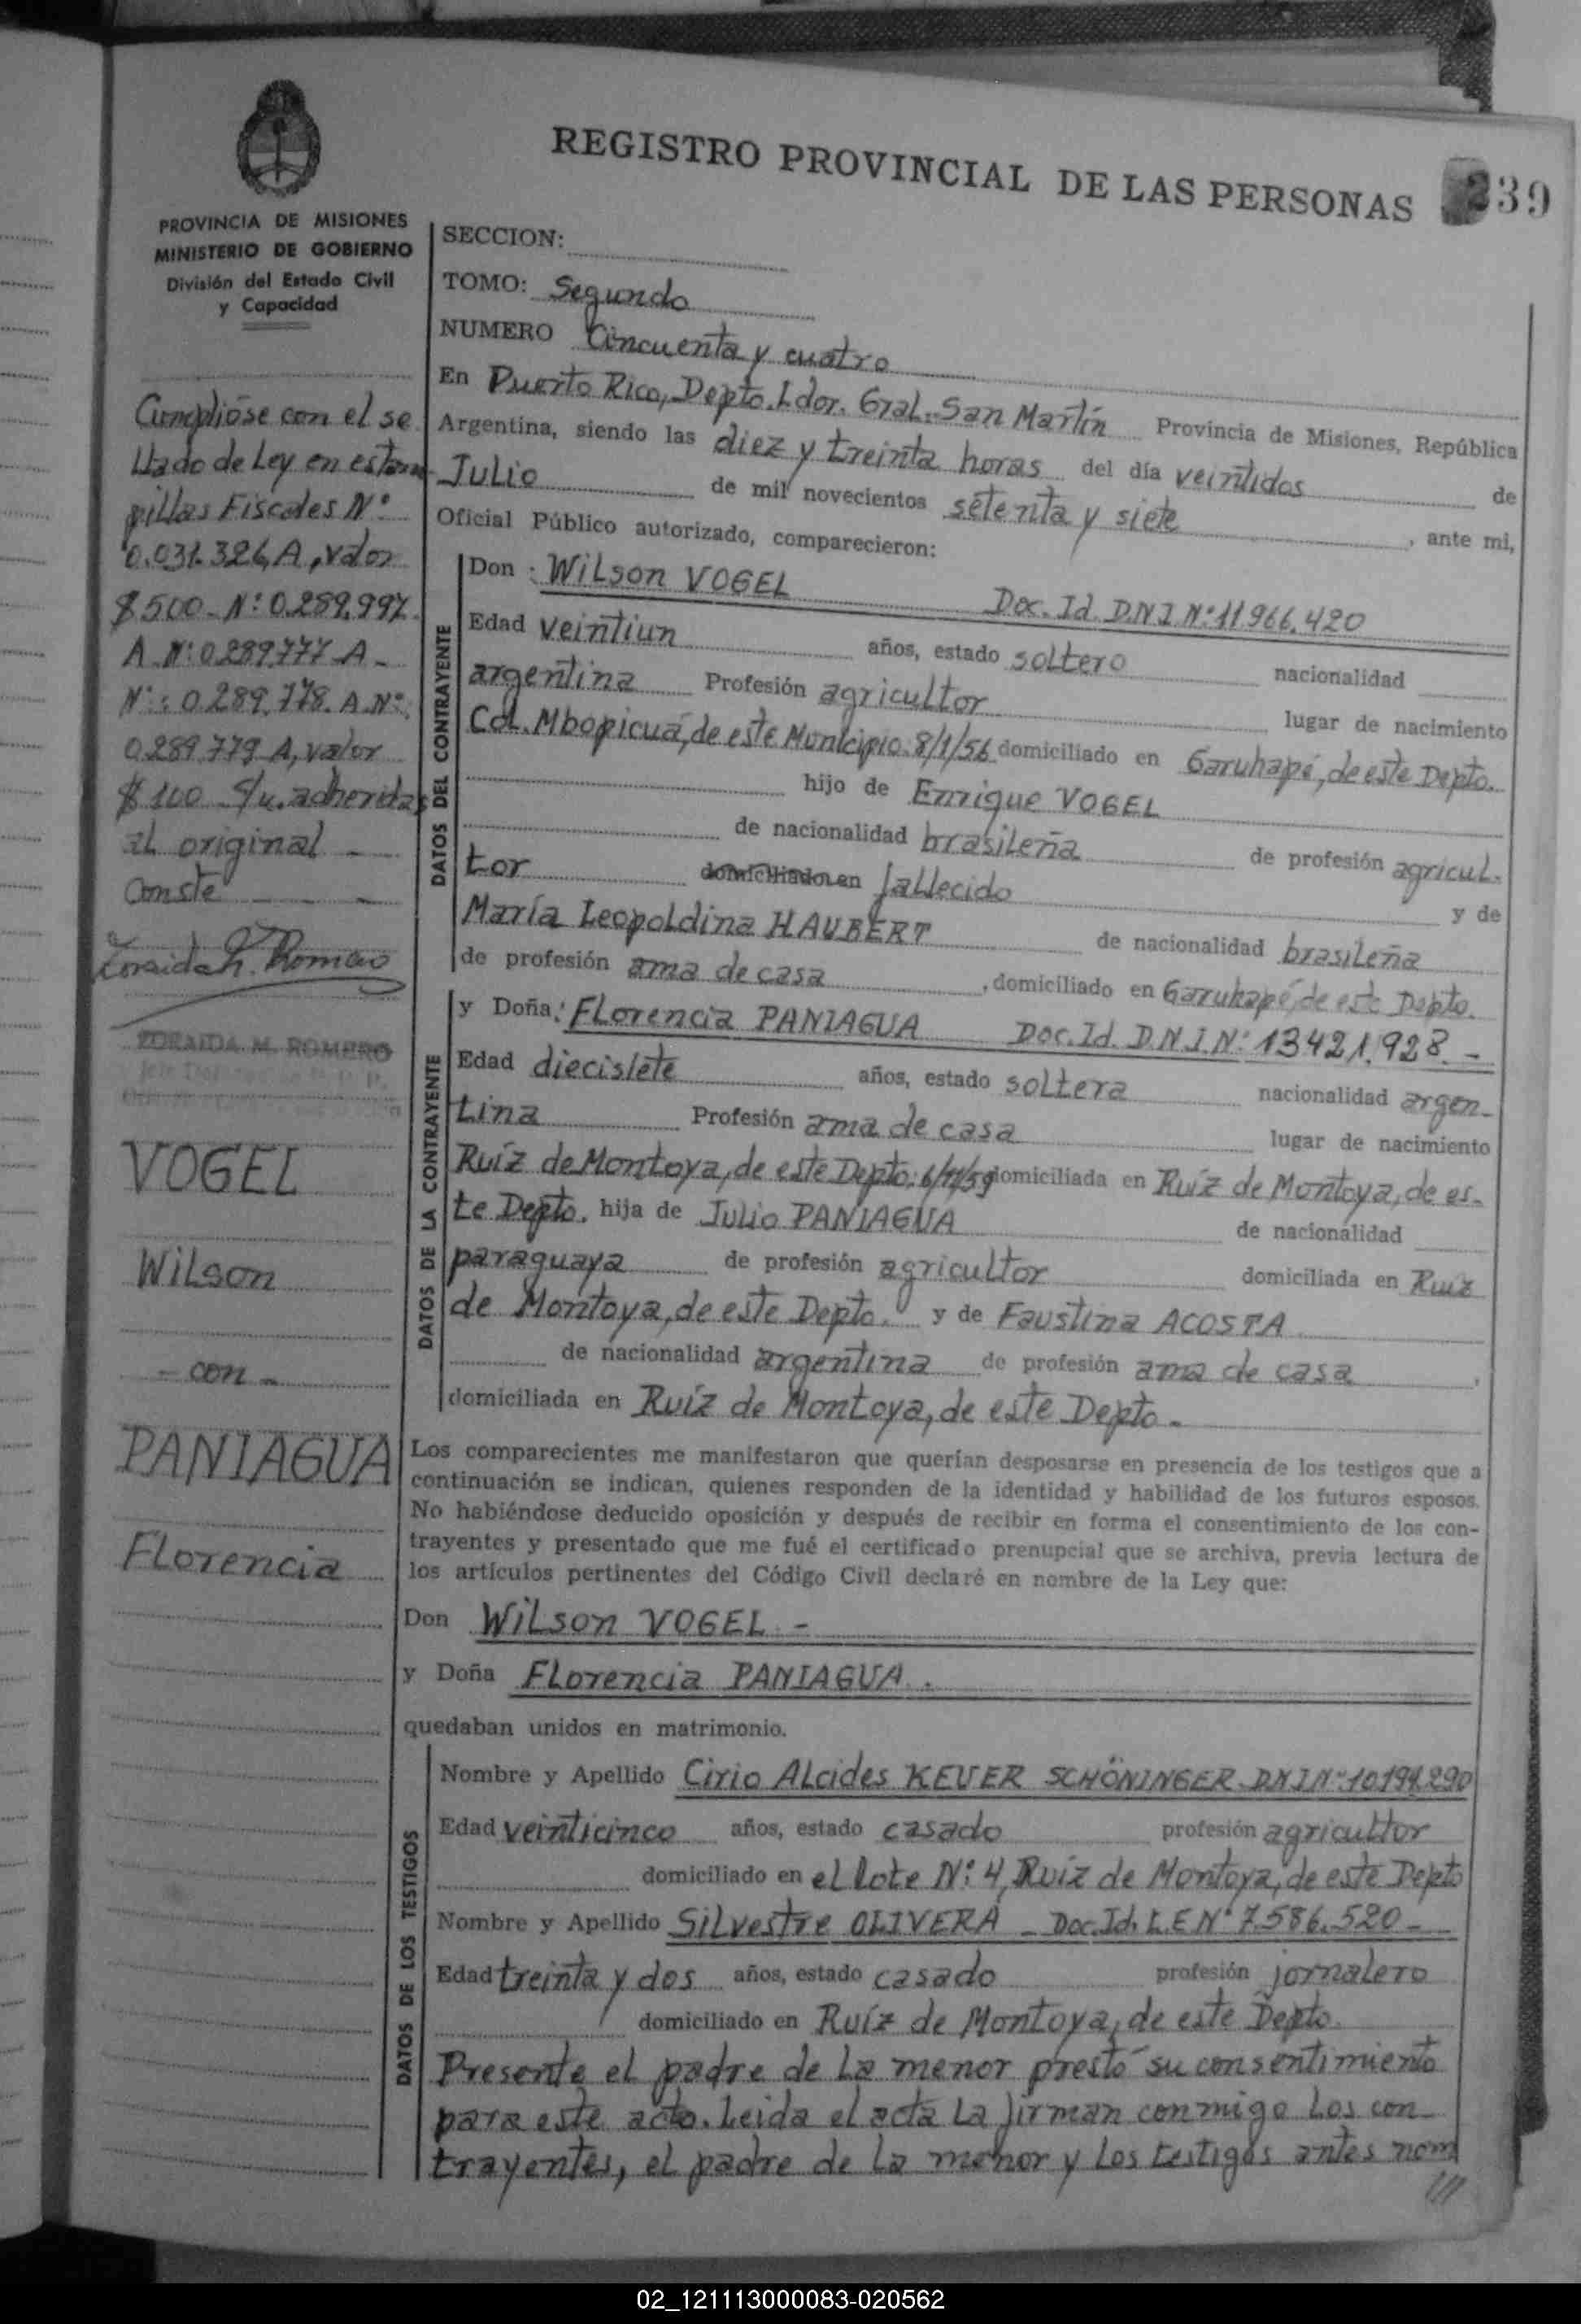 REGISTRO PROVINCIAL DE LAS PERSONAS 239
PROVINCIA DE MISIONES
MINISTERIO DE GOBIERNO
División del Estado Civil
y Capacidad
Cumplióse con el se
llado de Ley en estam
pillas Fiscales Nº
0.031.326, A, valor
$500 - Nº: 0.289.997.
A Nº: 0.289.777 - A -
Nº: 0.289.778. A. Nº:
0.289.779 A, valor
$100 c/u. adheridas
al original -
Conste - - -
Zoraida M. Romero
ZORAIDA M. ROMERO
VOGEL
Wilson
- con -
PANIAGUA
Florencia
SECCION:
TOMO: Segundo
NUMERO Cincuenta y cuatro
En Puerto Rico, Depto. Ldor. Gral. San Martín Provincia de Misiones, República
Argentina, siendo las diez y treinta horas del día veintidos de
Julio de mil novecientos setenta y siete, ante mi,
Oficial Público autorizado, comparecieron:
DATOS DEL CONTRAYENTE
Don: Wilson VOGEL Doc. Id. D.N.I. Nº: 11.966.420
Edad veintiun años, estado soltero nacionalidad
argentina Profesión agricultor lugar de nacimiento
Col. Mbopicuá, de este Municipio. 8/1/56 domiciliado en Garuhapé, de este Depto.
hijo de Enrique VOGEL
de nacionalidad brasileña de profesión agricul.
tor domiciliado en fallecido y de
María Leopoldina HAUBERT de nacionalidad brasileña
de profesión ama de casa, domiciliado en Garuhapé, de este Depto.
DATOS DE LA CONTRAYENTE
y Doña: Florencia PANIAGUA Doc. Id. D.N.I. Nº: 13.421.928. -
Edad diecisiete años, estado soltera nacionalidad argen-
tina Profesión ama de casa lugar de nacimiento
Ruíz de Montoya, de este Depto: 6/11/59 domiciliada en Ruíz de Montoya, de es-
te Depto. hija de Julio PANIAGUA de nacionalidad
paraguaya de profesión agricultor domiciliada en Ruíz
de Montoya, de este Depto. y de Faustina ACOSTA
de nacionalidad argentina de profesión ama de casa,
domiciliada en Ruíz de Montoya, de este Depto.
Los comparecientes me manifestaron que querían desposarse en presencia de los testigos que a
continuación se indican, quienes responden de la identidad y habilidad de los futuros esposos.
No habiéndose deducido oposición y después de recibir en forma el consentimiento de los con-
trayentes y presentado que me fué el certificado prenupcial que se archiva, previa lectura de
los artículos pertinentes del Código Civil declaré en nombre de la Ley que:
Don Wilson VOGEL -
y Doña Florencia PANIAGUA.
quedaban unidos en matrimonio.
DATOS DE LOS TESTIGOS
Nombre y Apellido Cirio Alcides KEUER SCHÖNINGER D.N.I Nº: 10.194.290
Edad veinticinco años, estado casado profesión agricultor
domiciliado en el lote Nº: 4, Ruíz de Montoya, de este Depto
Nombre y Apellido Silvestre OLIVERA - Doc. Id. L.E Nº 7.586.520 -
Edad treinta y dos años, estado casado profesión jornalero
domiciliado en Ruíz de Montoya, de este Depto.
Presente el padre de la menor prestó su consentimiento
para este acto. Leida el acta la firman conmigo los con-
trayentes, el padre de la menor y los testigos antes nom
///
02_121113000083-020562